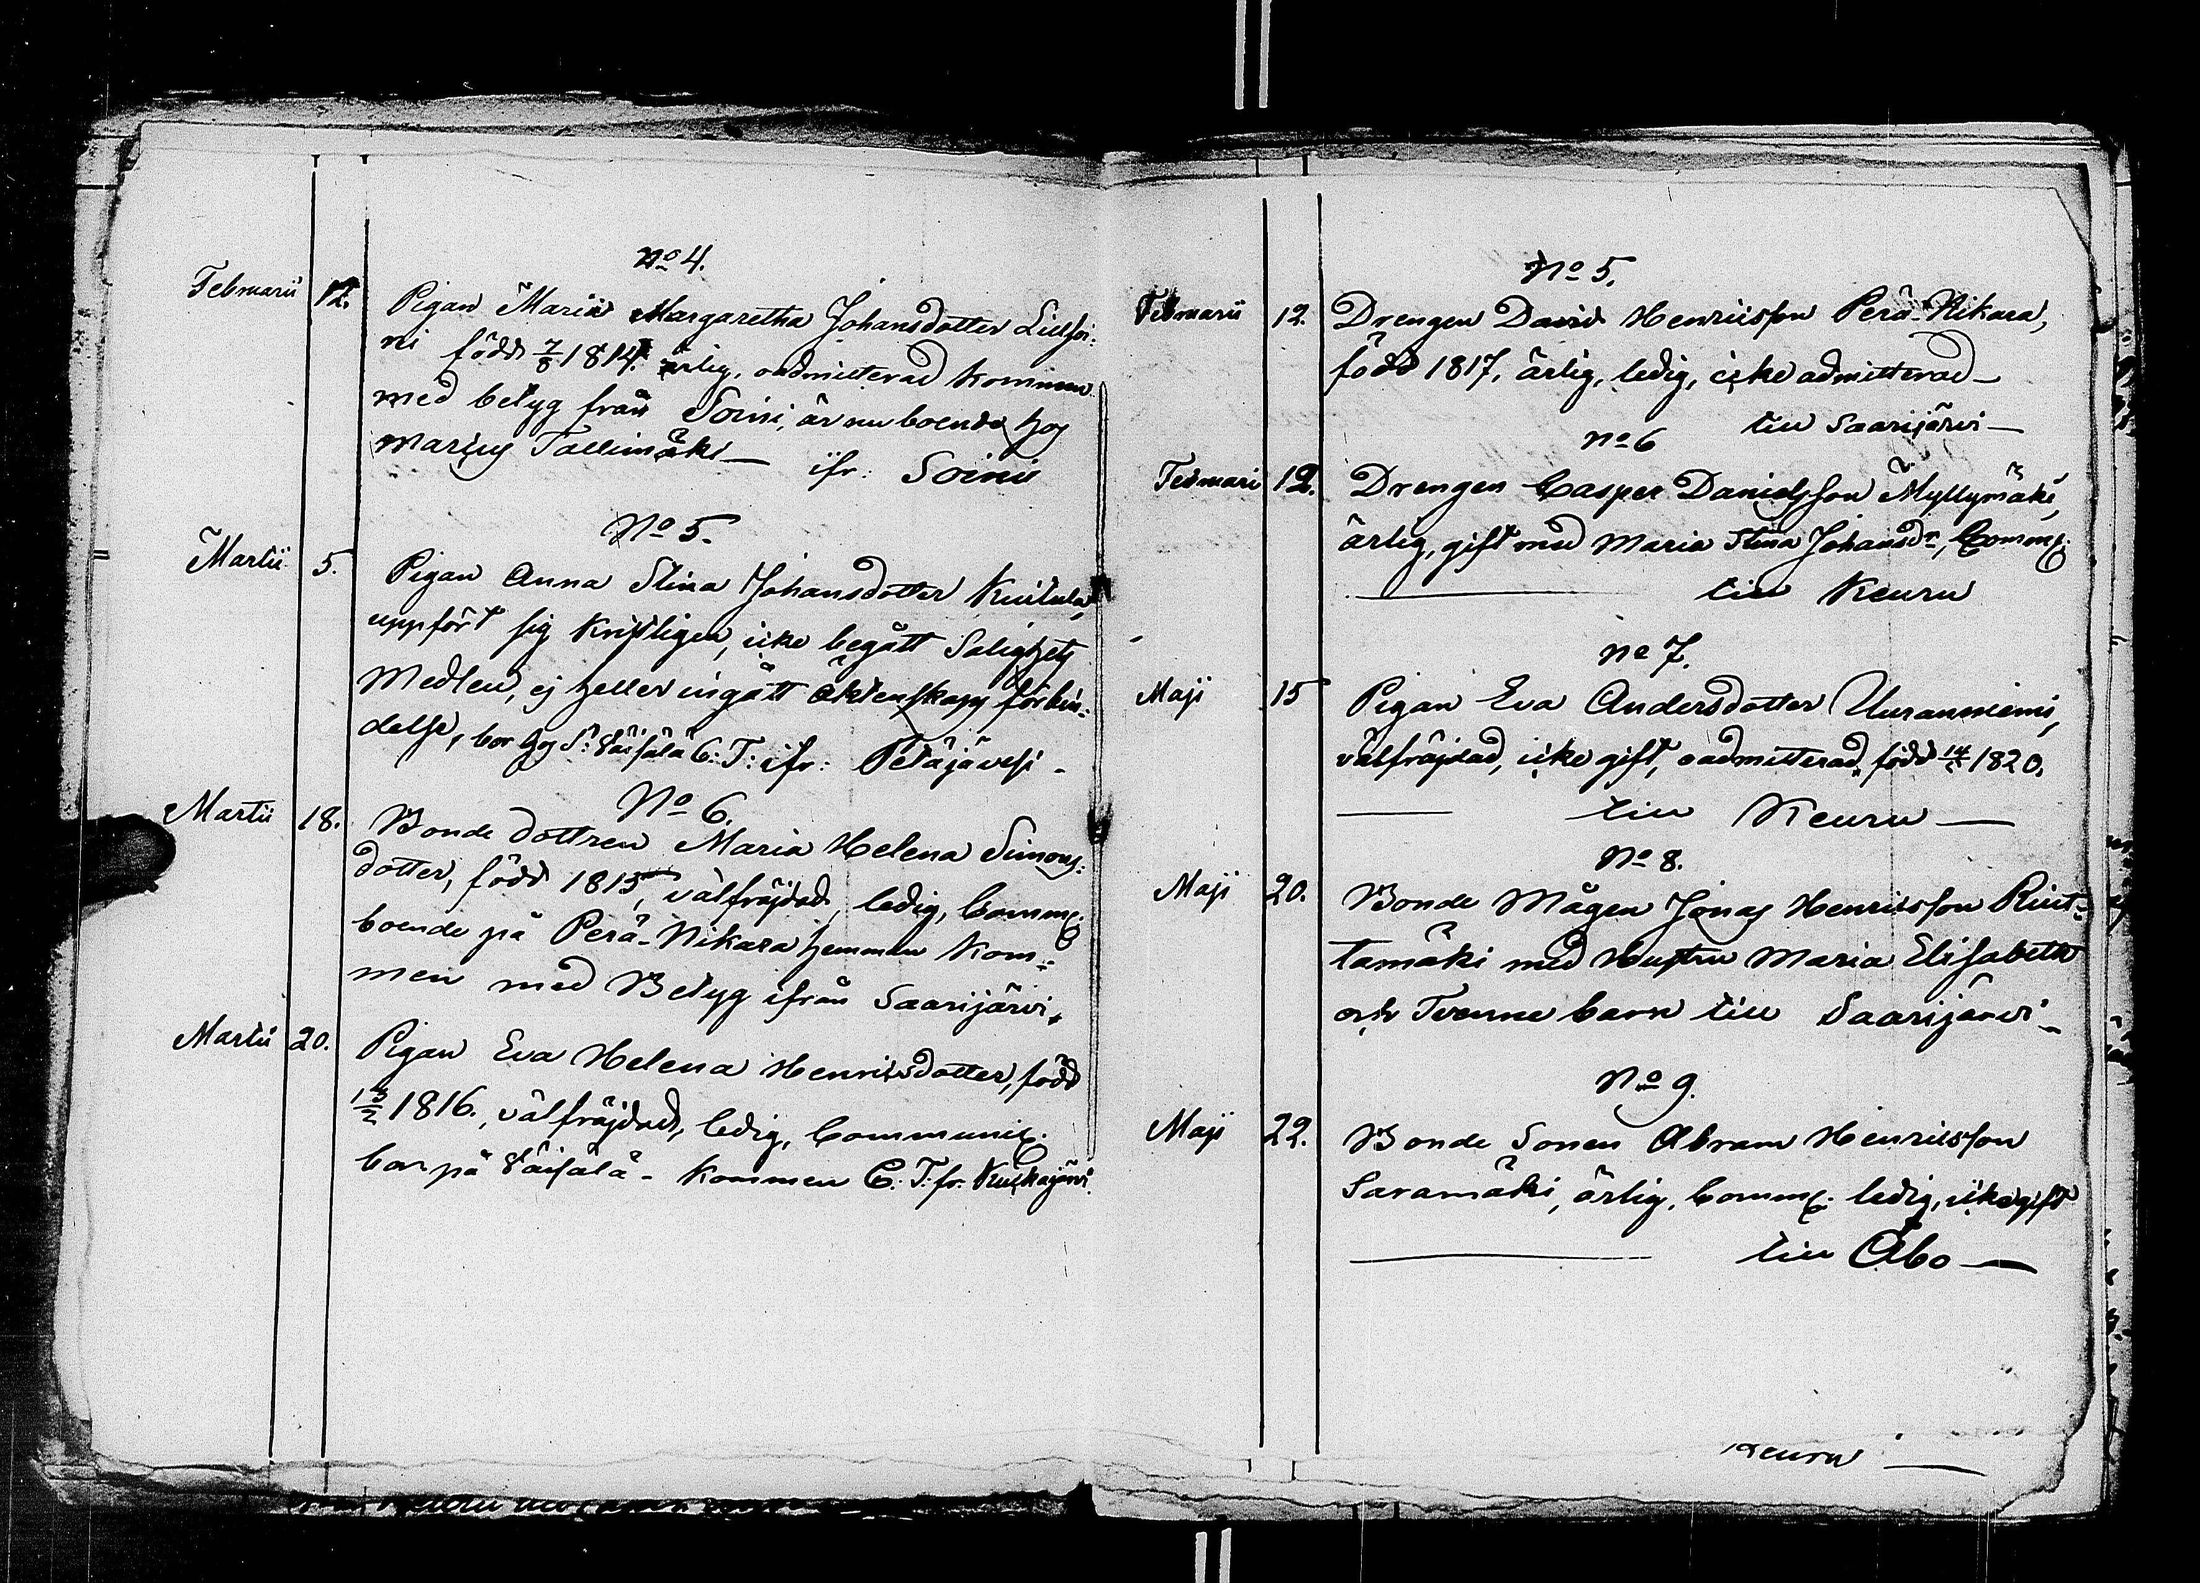 No 4.
Februarii 12. Pigan Maria Margaretha Johansdotter Lillsoi-
ni född 7/8 1814. ärlig, oadmitterad kommen
med betyg från Soini, är nu boende hos
Marcus Tallimäki — ifr: Soini
No 5.
Martii 5. Pigan Anna Stina Johansdotter Kuitula,
uppfört sig Kristligen, icke begått Salighets
Medlen, ej heller ingått äktenskaps förbin-
delse, bor hos S: Väisälä C: T: ifr: Petäjävesi -
No 6.
Martii 18. Bonde dottren Maria Helena Simons-
dotter, född 1815, välfräjdad, ledig, Comm:
boende på Perä-Nikara hemman kom-
men med Betyg ifrån Saarijärvi.
Martii 20. Pigan Eva Helena Henricsdotter, född
/2 1816., välfräjdad, ledig, Communic:
bor på Väisälä - kommen C: T: fr.
No 5.
Februarii 12. Drengen David Henricsson Perä-Nikara,
född 1817, ärlig, ledig, icke admitterad —
till Saarijärvi —
No 6
Februari 12. Drengen Casper Danielsson Myllymäki,
ärlig, gift med Maria Stina Johansdr, Comm:
— till Keuru
No 7.
Maji 15 Pigan Eva Andersdotter Uuranniemi,
välfräjdad, icke gift, oadmitterad, född 1820.
— till Keuru —
No 8.
Maji 20. Bonde Mågen Jonas Henricsson Riut-
tamäki med Hustru Maria Elisabeth
och Tvenne barn till Saarijärvi -
No 9.
Maji 22. Bonde Sonen Abram Henricsson
Saramäki, ärlig, Comm: ledig, icke gift
— till Åbo —
Keuru —